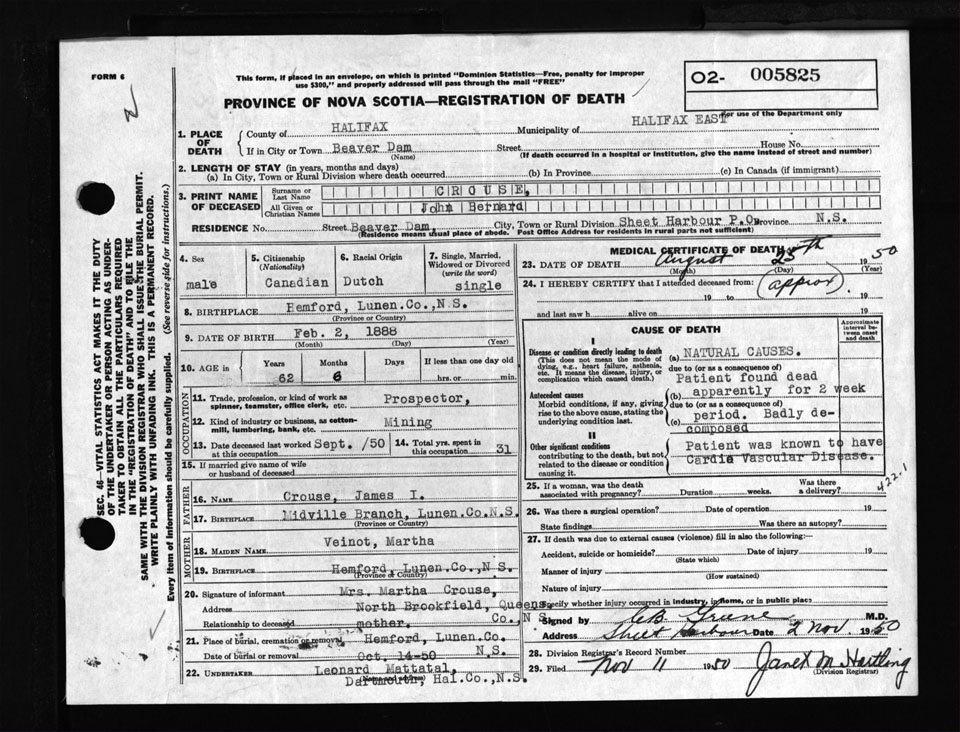 FORM 6
This form, if placed in an envelope, on which is printed "Dominion Statistics—Free, penalty for improper
use $300," and properly addressed will pass through the mail "FREE"
O2- 005825
For use of the Department only
PROVINCE OF NOVA SCOTIA—REGISTRATION OF DEATH
1. PLACE OF DEATH
County of HALIFAX Municipality of HALIFAX EAST
If in City or Town Beaver Dam Street House No.
(Name) (If death occurred in a hospital or institution, give the name instead of street and number)
2. LENGTH OF STAY (in years, months and days)
(a) In City, Town or Rural Division where death occurred (b) In Province (c) In Canada (if immigrant)
3. PRINT NAME OF DECEASED
Surname or Last Name CROUSE,
All Given or Christian Names John Bernard
RESIDENCE No. Street Beaver Dam, City, Town or Rural Division Sheet Harbour P.O. Province N.S.
(Residence means usual place of abode. Post Office Address for residents in rural parts not sufficient)
4. Sex male
5. Citizenship (Nationality) Canadian
6. Racial Origin Dutch
7. Single, Married, Widowed or Divorced (write the word) single
8. BIRTHPLACE Hemford, Lunen.Co.,N.S.
(Province or Country)
9. DATE OF BIRTH Feb. 2, 1888
(Month) (Day) (Year)
10. AGE in Years Months Days If less than one day old
62 6 hrs. or min.
OCCUPATION
11. Trade, profession, or kind of work as spinner, teamster, office clerk, etc. Prospector,
12. Kind of industry or business, as cotton-mill, lumbering, bank, etc. Mining
13. Date deceased last worked at this occupation Sept. /50 14. Total yrs. spent in this occupation 31
15. If married give name of wife or husband of deceased
FATHER
16. NAME Crouse, James I.
17. BIRTHPLACE Midville Branch, Lunen.Co.N.S.
(Province or Country)
MOTHER
18. MAIDEN NAME Veinot, Martha
19. BIRTHPLACE Hemford, Lunen.Co.,N.S.
(Province or Country)
20. Signature of informant Mrs. Martha Crouse,
Address North Brookfield, Queens
Co., N.S.
Relationship to deceased mother.
21. Place of burial, cremation or removal Hemford, Lunen.Co.
N.S.
Date of burial or removal Oct. 14-50
22. UNDERTAKER Leonard Mattatal,
(Name and address)
Dartmouth, Hal.Co.,N.S.
MEDICAL CERTIFICATE OF DEATH
23. DATE OF DEATH August 25th 1950
(Month) (Day) (Year)
24. I HEREBY CERTIFY that I attended deceased from: (approx)
19 to 19
and last saw h alive on 19
CAUSE OF DEATH
Approximate interval between onset and death
I
Disease or condition directly leading to death (a) NATURAL CAUSES.
(This does not mean the mode of dying, e.g., heart failure, asthenia, etc. It means the disease, injury, or complication which caused death.)
due to (or as a consequence of)
Patient found dead
Antecedent causes (b) apparently for 2 week
Morbid conditions, if any, giving rise to the above cause, stating the underlying condition last.
due to (or as a consequence of)
period. Badly de-
(c) composed
II
Other significant conditions
contributing to the death, but not related to the disease or condition causing it.
Patient was known to have
Cardie Vascular Disease.
422.1
25. If a woman, was the death associated with pregnancy? Duration weeks. Was there a delivery?
26. Was there a surgical operation? Date of operation 19
State findings Was there an autopsy?
27. If death was due to external causes (violence) fill in also the following:
Accident, suicide or homicide? Date of injury 19
(State which)
Manner of injury
(How sustained)
Nature of injury
Specify whether injury occurred in industry, in home, or in public place
Signed by M.D.
Address Sheet Harbour Date 2 Nov. 1950
28. Division Registrar's Record Number
29. Filed Nov 11 1950 Janet M Hartling
(Division Registrar)
SEC. 46—VITAL STATISTICS ACT MAKES IT THE DUTY
OF THE UNDERTAKER OR PERSON ACTING AS UNDER-
TAKER TO OBTAIN ALL THE PARTICULARS REQUIRED
IN THE "REGISTRATION OF DEATH" AND TO FILE THE
SAME WITH THE DIVISION REGISTRAR WHO SHALL ISSUE THE BURIAL PERMIT.
WRITE PLAINLY WITH UNFADING INK. THIS IS A PERMANENT RECORD.
Every item of information should be carefully supplied. (See reverse side for instructions.)